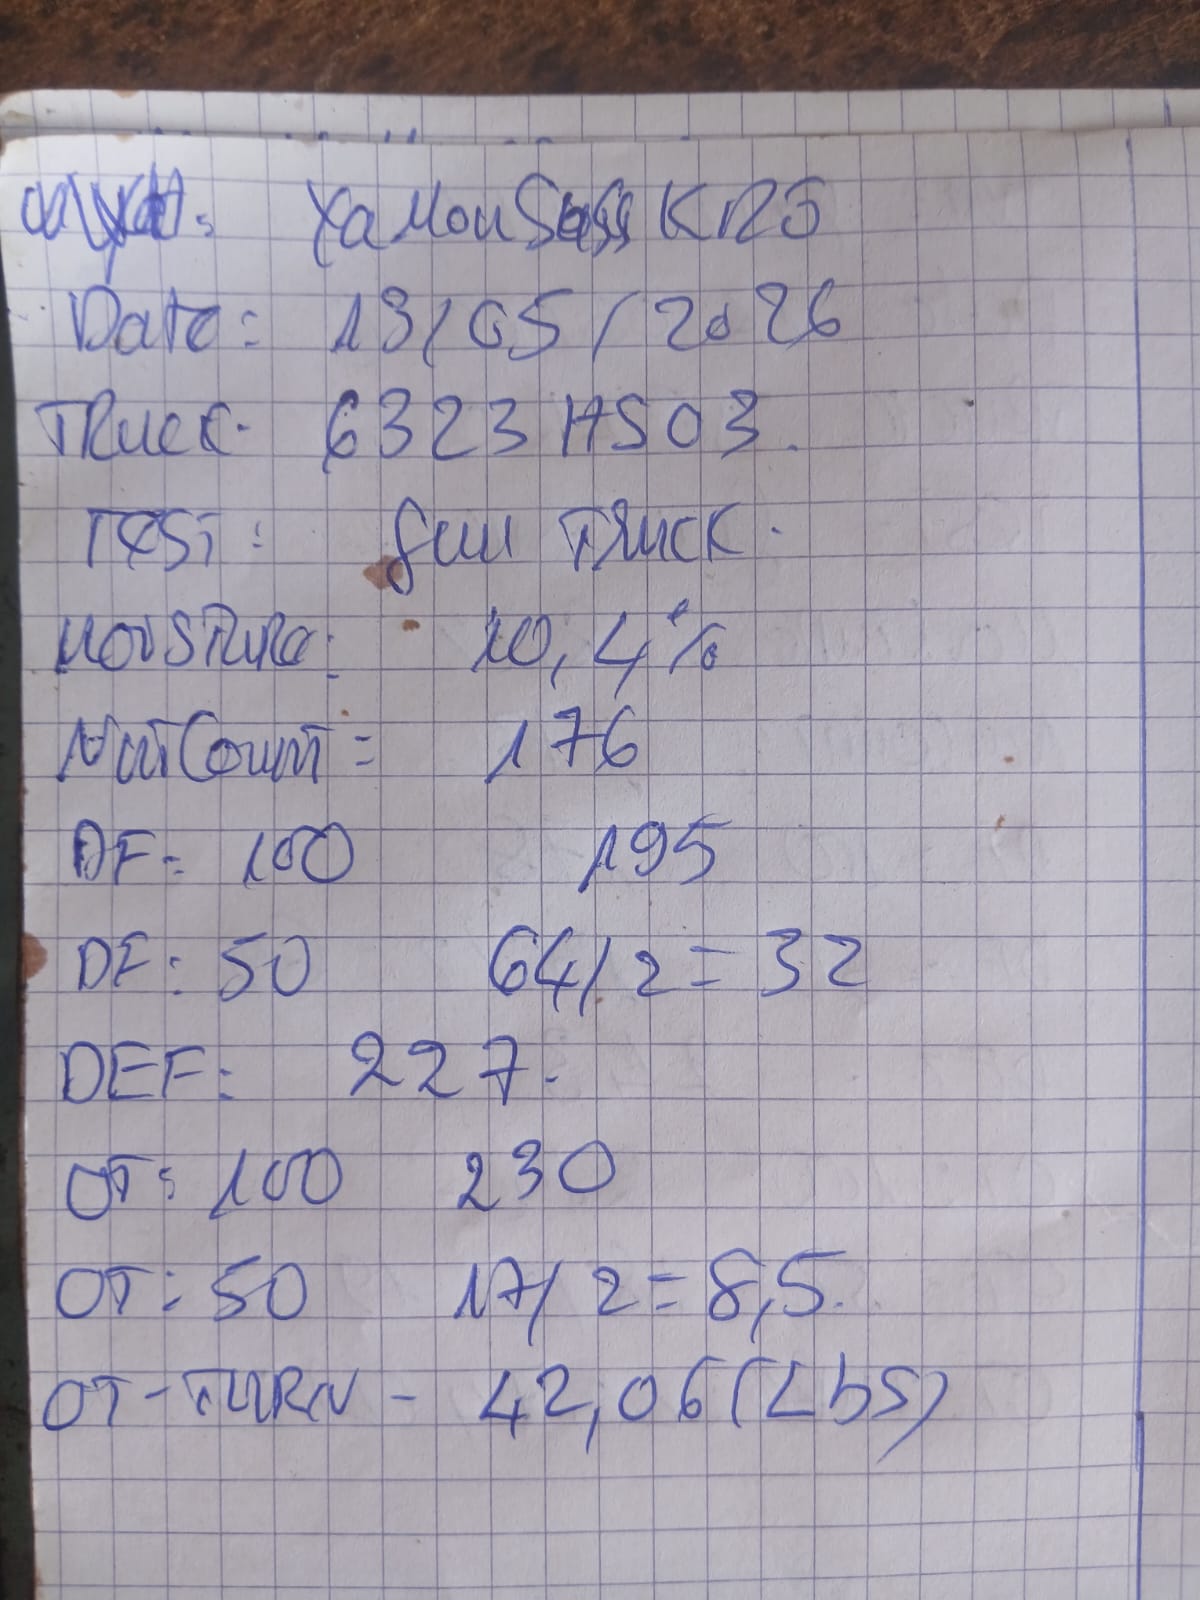 Yamoussokro
Date: 13/05/2026
TRUCK. 6323HS03.
TEST: full TRUCK.
MOISTURE: 10,4%
NutCount = 176
DF = 100 195
DF: 50 64/2 = 32
DEF: 227.
OT: 100 230
OT: 50 17/2 = 8,5.
OT-TURN - 42,06(Lbs)